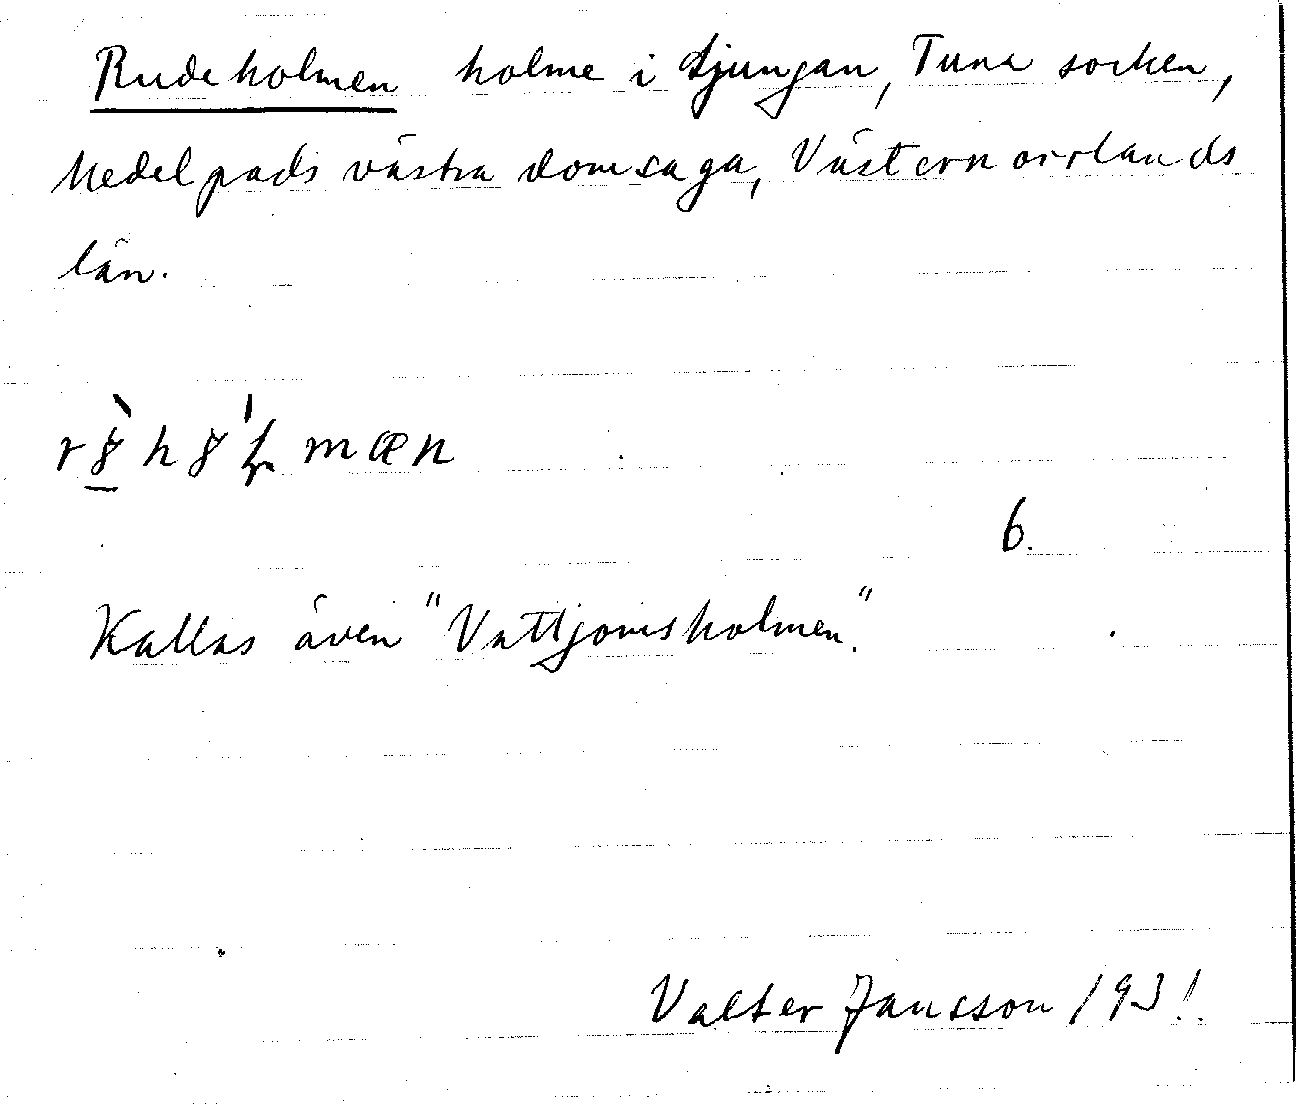 Rudeholmen holme i Ljungan, Tuna socken,
Medelpads västra domsaga, Västernorrlands
län.
6.
Kallas även "Vattjomsholmen."
Valter Jansson 1931.